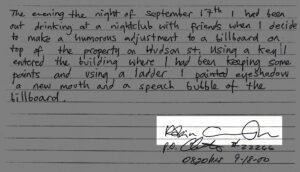 The evening the night of september 17th I had been
out drinking at a nightclub with friends when I decide
to make a humorous adjustment to a billboard on
top of the property on Hudson st. Using a key I
entered the building where I had been keeping some
paints and using a ladder I painted eyeshadow
a new mouth and a speach bubble of the
billboard.
Robin
P.O. # 22266
0820hrs 9-18-00